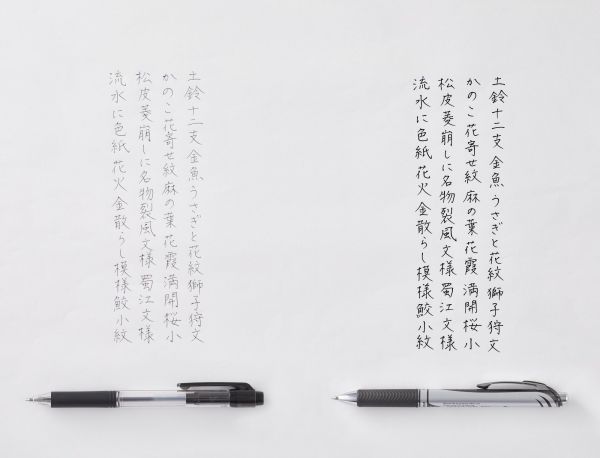 土鈴十二支 金魚 うさぎと花紋 獅子狩文
かのこ花寄せ紋 麻の葉 花霞 満開桜小
松皮菱崩しに名物裂風文様 蜀江文様
流水に色紙 花火 金散らし模様 鮫小紋
土鈴十二支 金魚 うさぎと花紋 獅子狩文
かのこ花寄せ紋 麻の葉 花霞 満開桜小
松皮菱崩しに名物裂風文様 蜀江文様
流水に色紙 花火 金散らし模様 鮫小紋